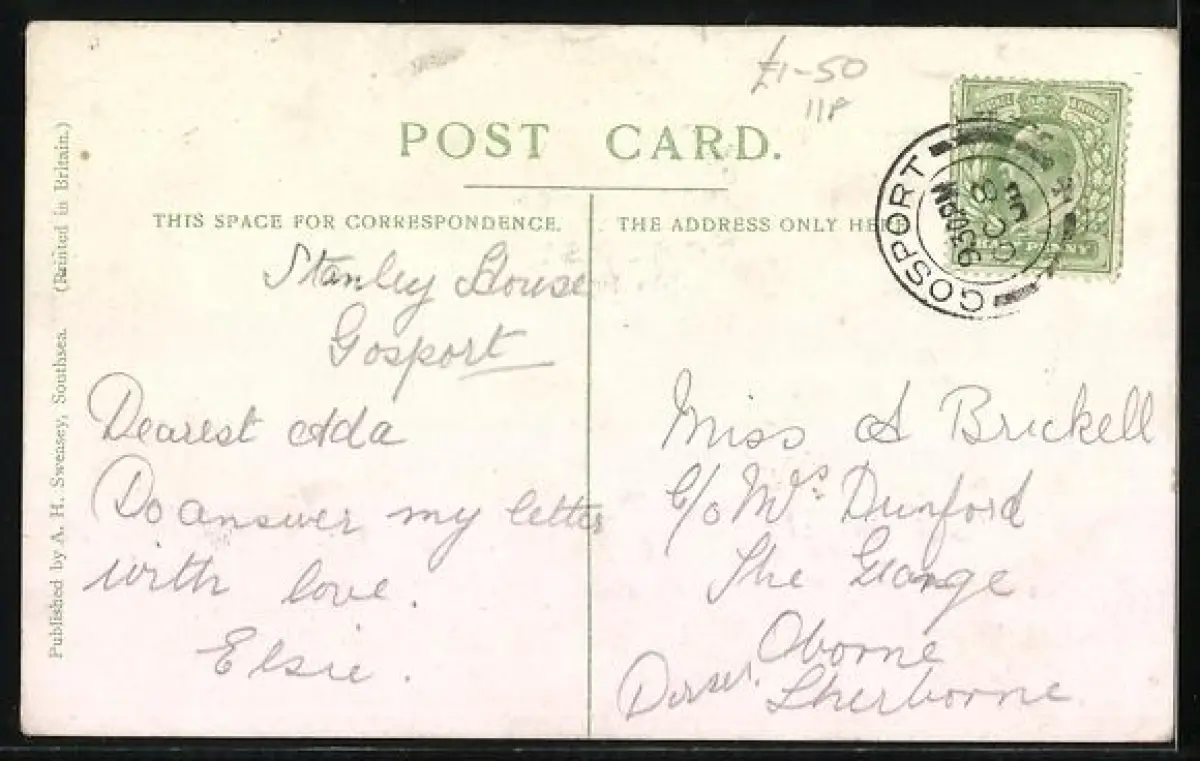 £1-50
118
POST CARD.
THIS SPACE FOR CORRESPONDENCE.
THE ADDRESS ONLY HE
HALF PENNY
GOSPORT
9 30 PM
Published by A. H. Swensey, Southsea. (Printed in Britain.)
Stanley House
Gosport
Dearest Ada
Do answer my letter
with love.
Elsie.
Miss A Brickell
c/o Mrs Dunford
The Grange
Oborne
Sherborne
Dorset.